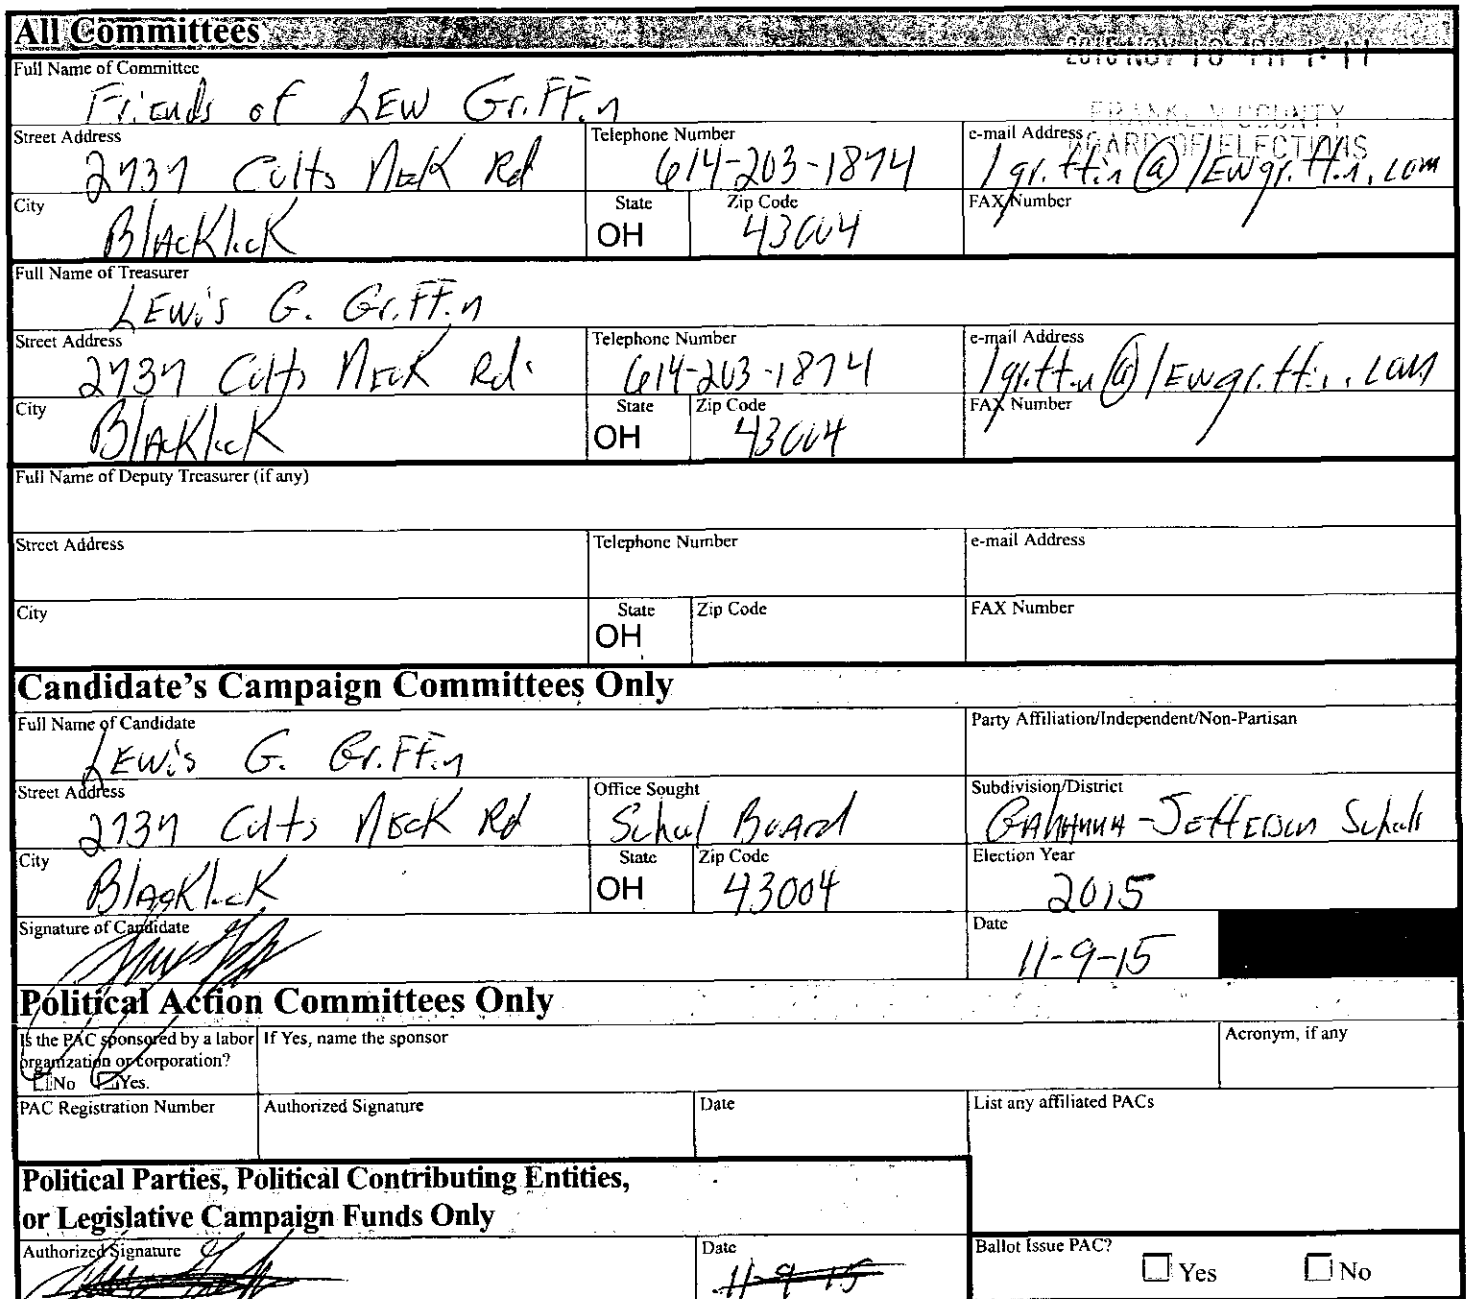 All Committees
2015 NOV 18 PM 1:11
FRANKLIN COUNTY
BOARD OF ELECTIONS
Full Name of Committee
Friends of LEW GriFFin
Street Address
2737 Colts NecK Rd
Telephone Number
614-203-1874
e-mail Address
lgriffin@lewgriffin.com
City
BlAcKlicK
State
OH
Zip Code
43004
FAX Number
Full Name of Treasurer
LEWis G. GriFFin
Street Address
2737 Colts NecK Rd.
Telephone Number
614-203-1874
e-mail Address
lgriffin@lewgriffin.com
City
BlAcKlicK
State
OH
Zip Code
43004
FAX Number
Full Name of Deputy Treasurer (if any)
Street Address
Telephone Number
e-mail Address
City
State
OH
Zip Code
FAX Number
Candidate's Campaign Committees Only
Full Name of Candidate
LEWis G. GriFFin
Party Affiliation/Independent/Non-Partisan
Street Address
2737 Colts NecK Rd
Office Sought
School Board
Subdivision/District
Gahanna-Jefferson Schools
City
BlacKlicK
State
OH
Zip Code
43004
Election Year
2015
Signature of Candidate
Date
11-9-15
Political Action Committees Only
Is the PAC sponsored by a labor
organization or corporation?
No Yes.
If Yes, name the sponsor
Acronym, if any
PAC Registration Number
Authorized Signature
Date
List any affiliated PACs
Political Parties, Political Contributing Entities,
or Legislative Campaign Funds Only
Authorized Signature
Date
11-9-15
Ballot Issue PAC?
Yes No